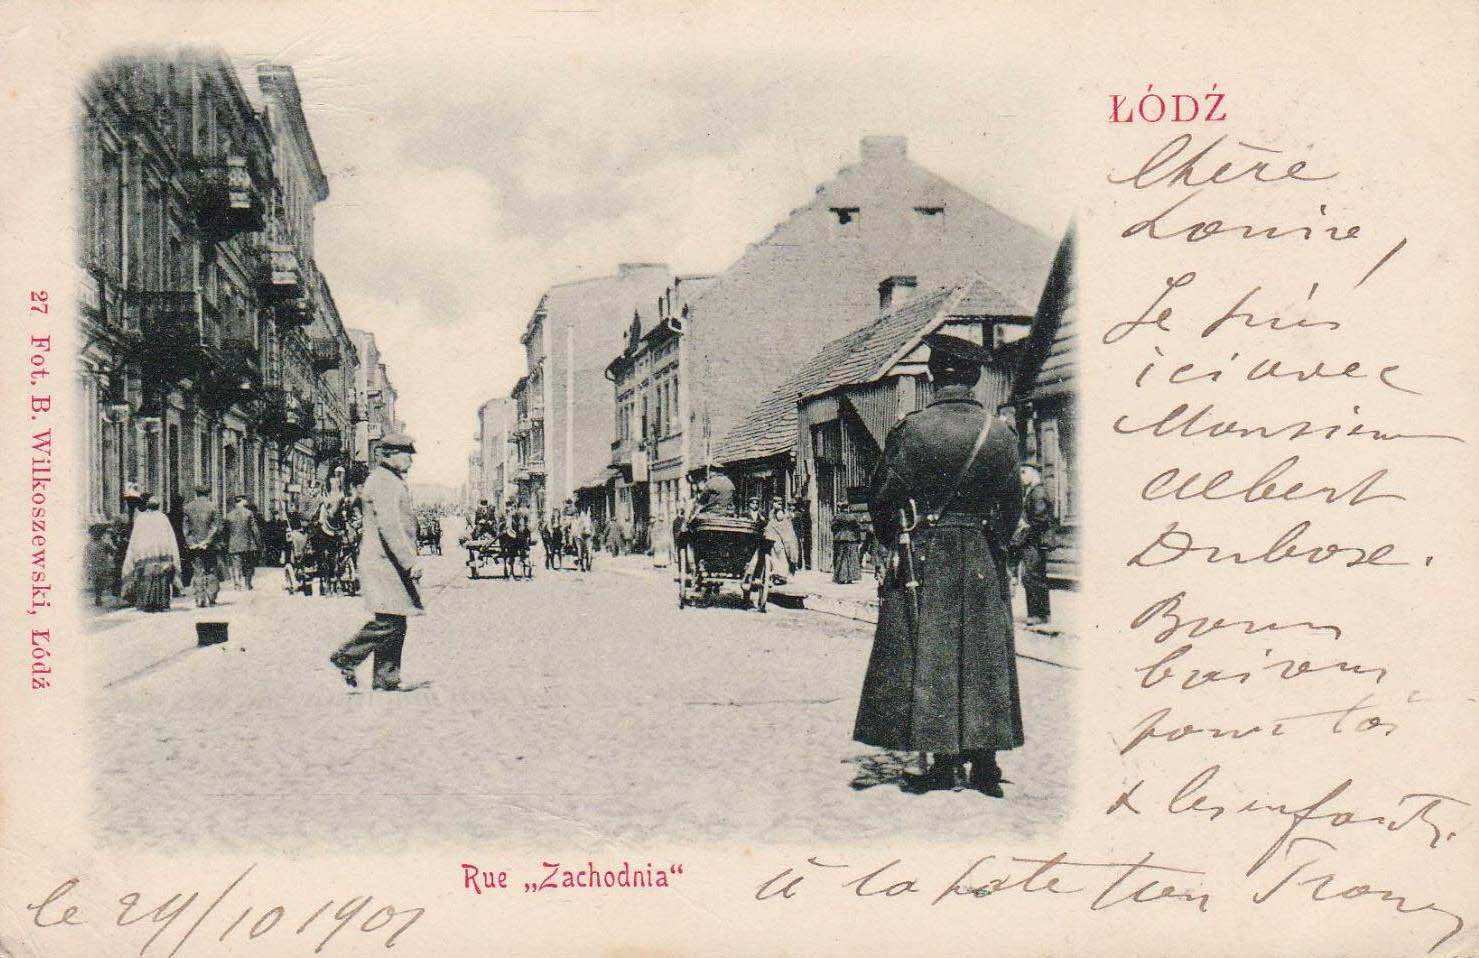 ŁÓDŹ
Chère
Louise,
Je suis
ici avec
Monsieur
Albert
Dubosc.
Bons
baisers
pour toi
& les enfants.
à la hâte ton
Rue „Zachodnia“
le 29/10 1901
27 Fot. B. Wilkoszewski, Łódź